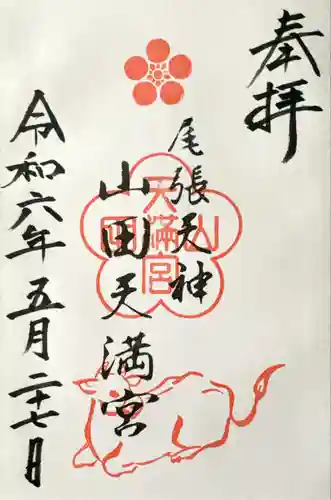 奉拝
尾張天神
山田天満宮
山田天満宮
令和六年五月二十七日